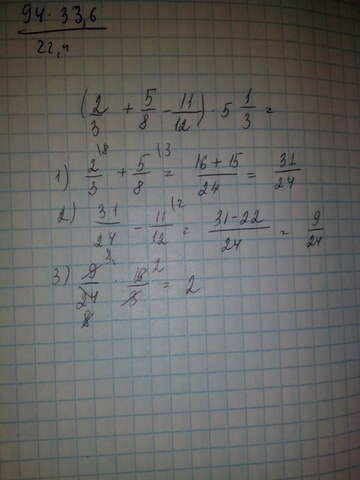 94 · 33,6 / 22,4
(2/3 + 5/8 - 11/12) · 5 1/3 =
1) 2/3 \8 + 5/8 \3 = 16+15/24 = 31/24
2) 31/24 - 11/12 \2 = 31-22/24 = 9/24
3) 9/24 8 · 16/3 2 = 2